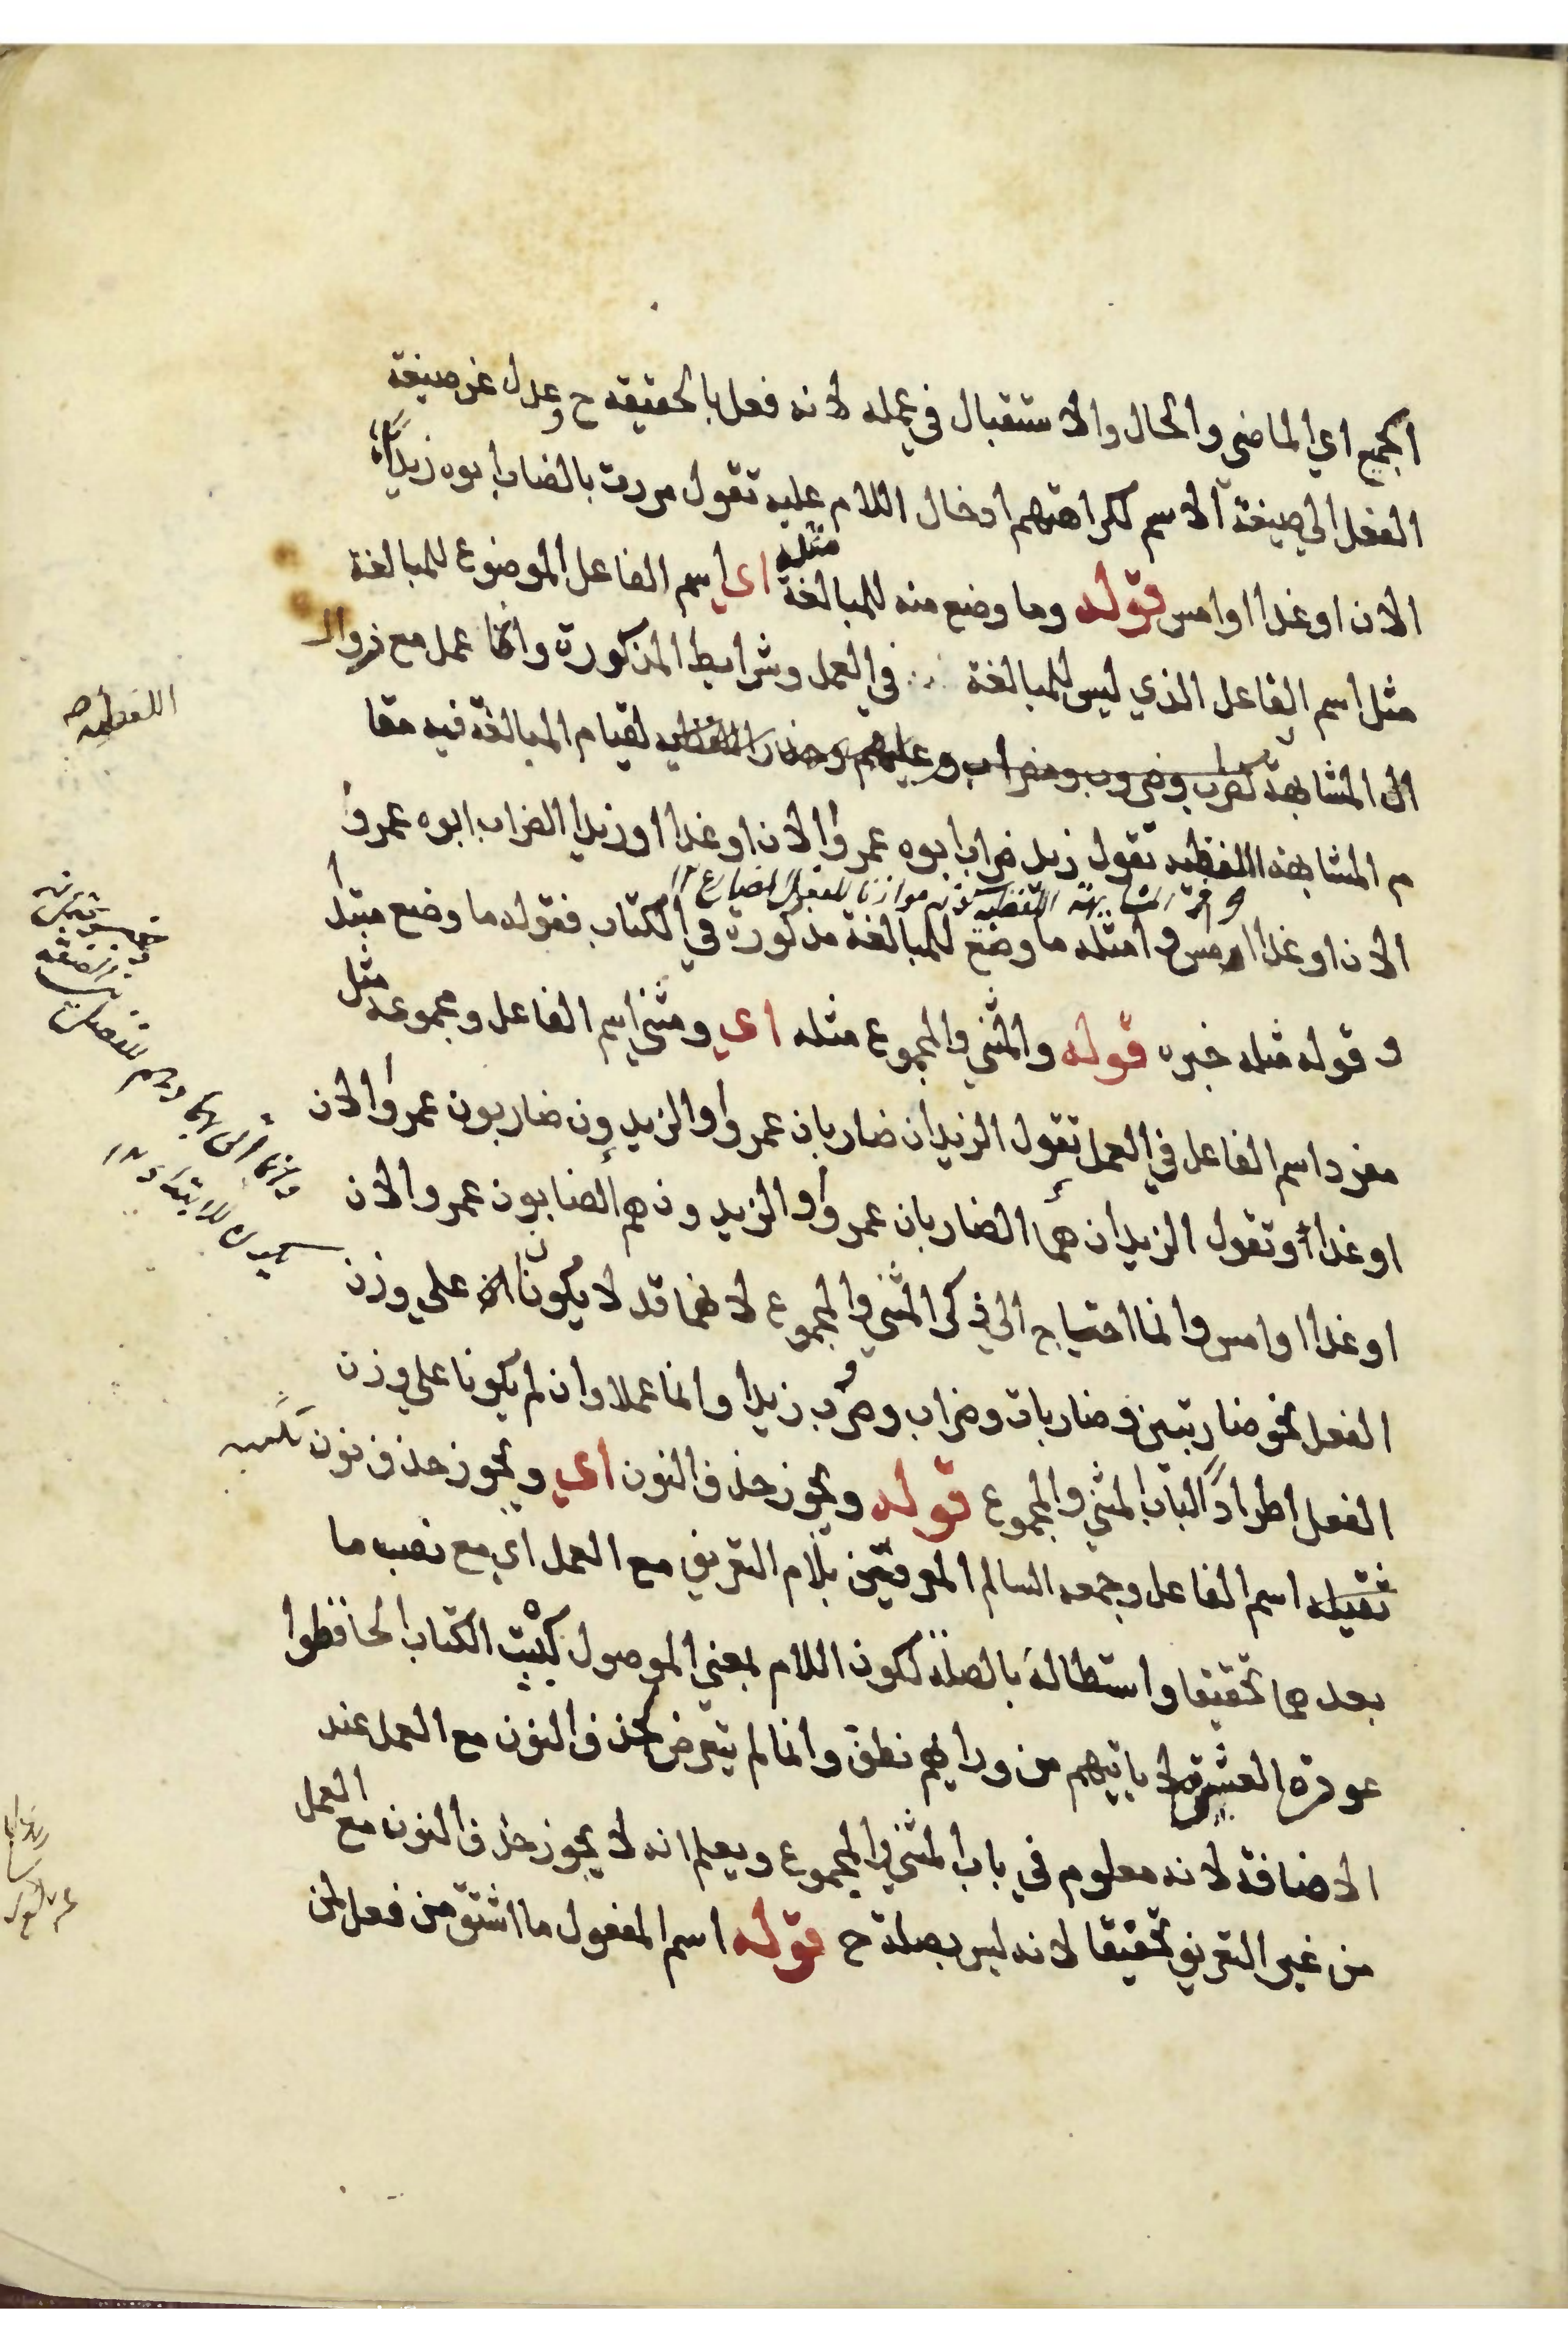 الجميع اي الماضي والحال والاستقبال في عمله لانه فعل بالحقيقه ح وعدل عن صيغة
الفعل الي صيغة الاسم لكراهتهم ادخال اللام عليه تقول مررت بالضارب ابوه زيدا
الان او غدا او امس قوله وما وضع منه للمبالغة مثله اي اسم الفاعل الموضوع للمبالغة
مثل اسم الفاعل الذي ليس للمبالغة في العمل وشرايط المذكورة وانما عمل مع زوال
المشابهة كضراب وضروب ومضراب وعليم وحذر اللفظيه لقيام المبالغة فيه مقا
م المشابهة اللفظيه تقول زيد ضراب ابوه عمروا الان او غدا او زيدا الضراب ابوه عمروا
الان او غدا او امس و امثله ما وضع للمبالغة مذكورة في الكتاب فقوله ما وضع مبتدا
و قوله مثله خبره قوله والمثني والمجموع مثله اي ومثني اسم الفاعل ومجموعه مثل
مفرد اسم الفاعل في العمل تقول الزيدان ضاربان عمروا والزيدون ضاربون عمروا الان
او غدا وتقول الزيدان هما الضاربان عمروا والزيدون هم الضابون عمروا الان
او غدا او امس وانما احتياج الي ذكر المثني والمجموع لانهما قد لا يكونان علي وزن
الفعل نحو ضاربتين وضاربات وضراب وضرب زيدا وانما عملا وان لم يكونا علي وزن
الفعل اطرادا لباب المثني والمجموع قوله ويجوز حذف النون اي ويجوز حذف نون
تثنيه اسم الفاعل وجمعه السالم المعرفتين بلام التعريف مع العمل اي مع نصب ما
بعدهما تخفيفا واستطالة بالصلة لكون اللام بمعني الموصول كبيت الكتاب الحافظوا
عورة العشيرة لا ياتيهم من ورايهم نطف وانما لم يتعرض لحذف النون مع العمل عند
الاضافة لانه معلوم في باب المثني والمجموع ويعلم انه لا يجوز حذف النون مع العمل
من غير التعريف تخفيفا لانه ليس بصلة ح قوله اسم المفعول ما اشتق من فعل لمن
اللفظيه صح